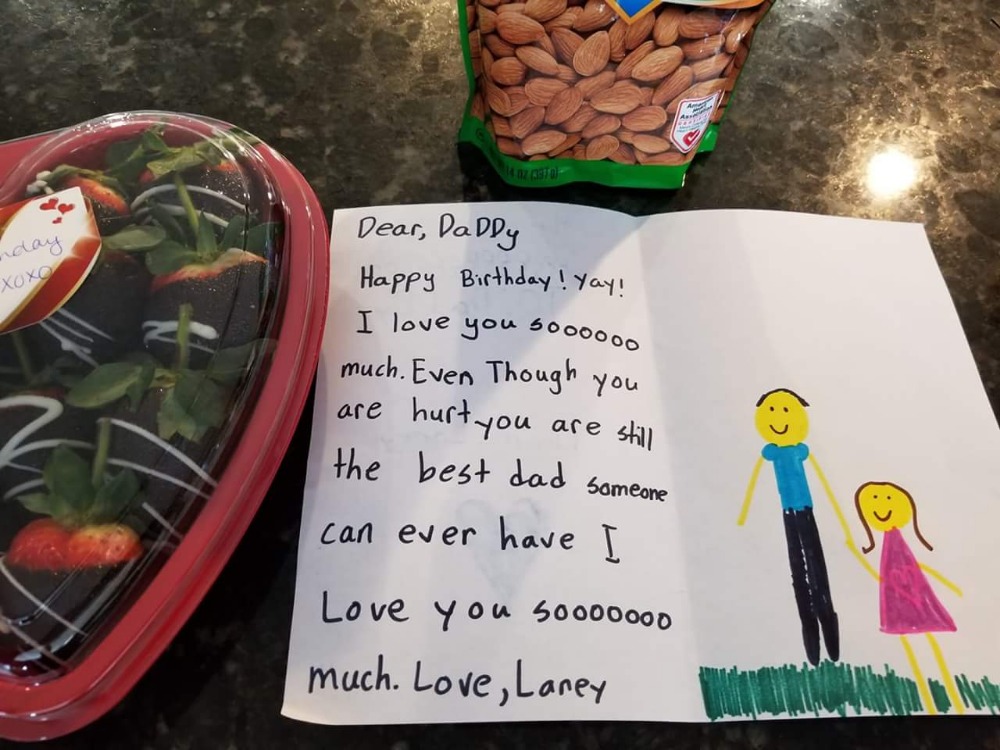 14 OZ (397g)
nday
xoxo
Dear, DaDDy
Happy Birthday! Yay!
I love you soooooo
much. Even Though you
are hurt you are still
the best dad someone
can ever have I
Love you sooooooo
much. Love, Laney